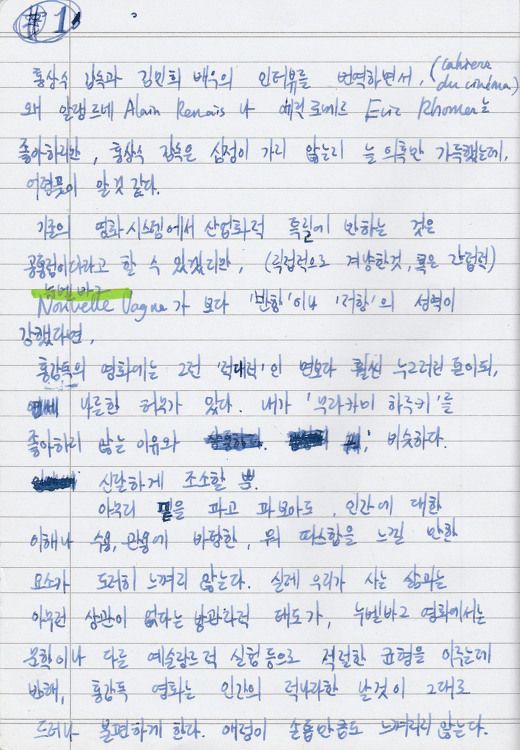 #1.
홍상수 감독과 김민희 배우의 인터뷰를 번역하면서, (Cahiers du cinéma)
왜 알랭르네 Alain Renais 나 에릭 로메르 Eric Rhomer는
좋아하지만, 홍상수 감독은 심정이 가지 않는지 늘 의혹만 가득했는데,
어렴풋이 알 것 같다.
기존의 영화시스템에서 산업화적 특질에 반하는 것은
공통점이다라고 할 수 있겠지만, (직접적으로 겨냥한것, 혹은 간접적)
누벨바그
Nouvelle Vague가 보다 '반항'이나 '저항'의 성격이
강했다면,
홍감독의 영화에는 그런 '적대적'인 면보다 훨씬 누그러진 톤이되,
나른한 허무가 있다. 내가 '무라카미 하루키'를
좋아하지 않는 이유와 비슷하다.
신랄하게 조소할 뿐.
아무리 밑을 파고 파보아도, 인간에 대한
이해나 수용, 관용에 바탕한, 뭐 따스함을 느낄 만한
요소가 도저히 느껴지지 않는다. 실제 우리가 사는 삶과는
아무런 상관이 없다는 방관자적 태도가, 누벨바그 영화에서는
문학이나 다른 예술장르적 실험등으로 적절한 균형을 이루는데
반해, 홍감독 영화는 인간의 적나라한 날것이 그대로
드러나 불편하게 한다. 애정이 손톱만큼도 느껴지지 않는다.